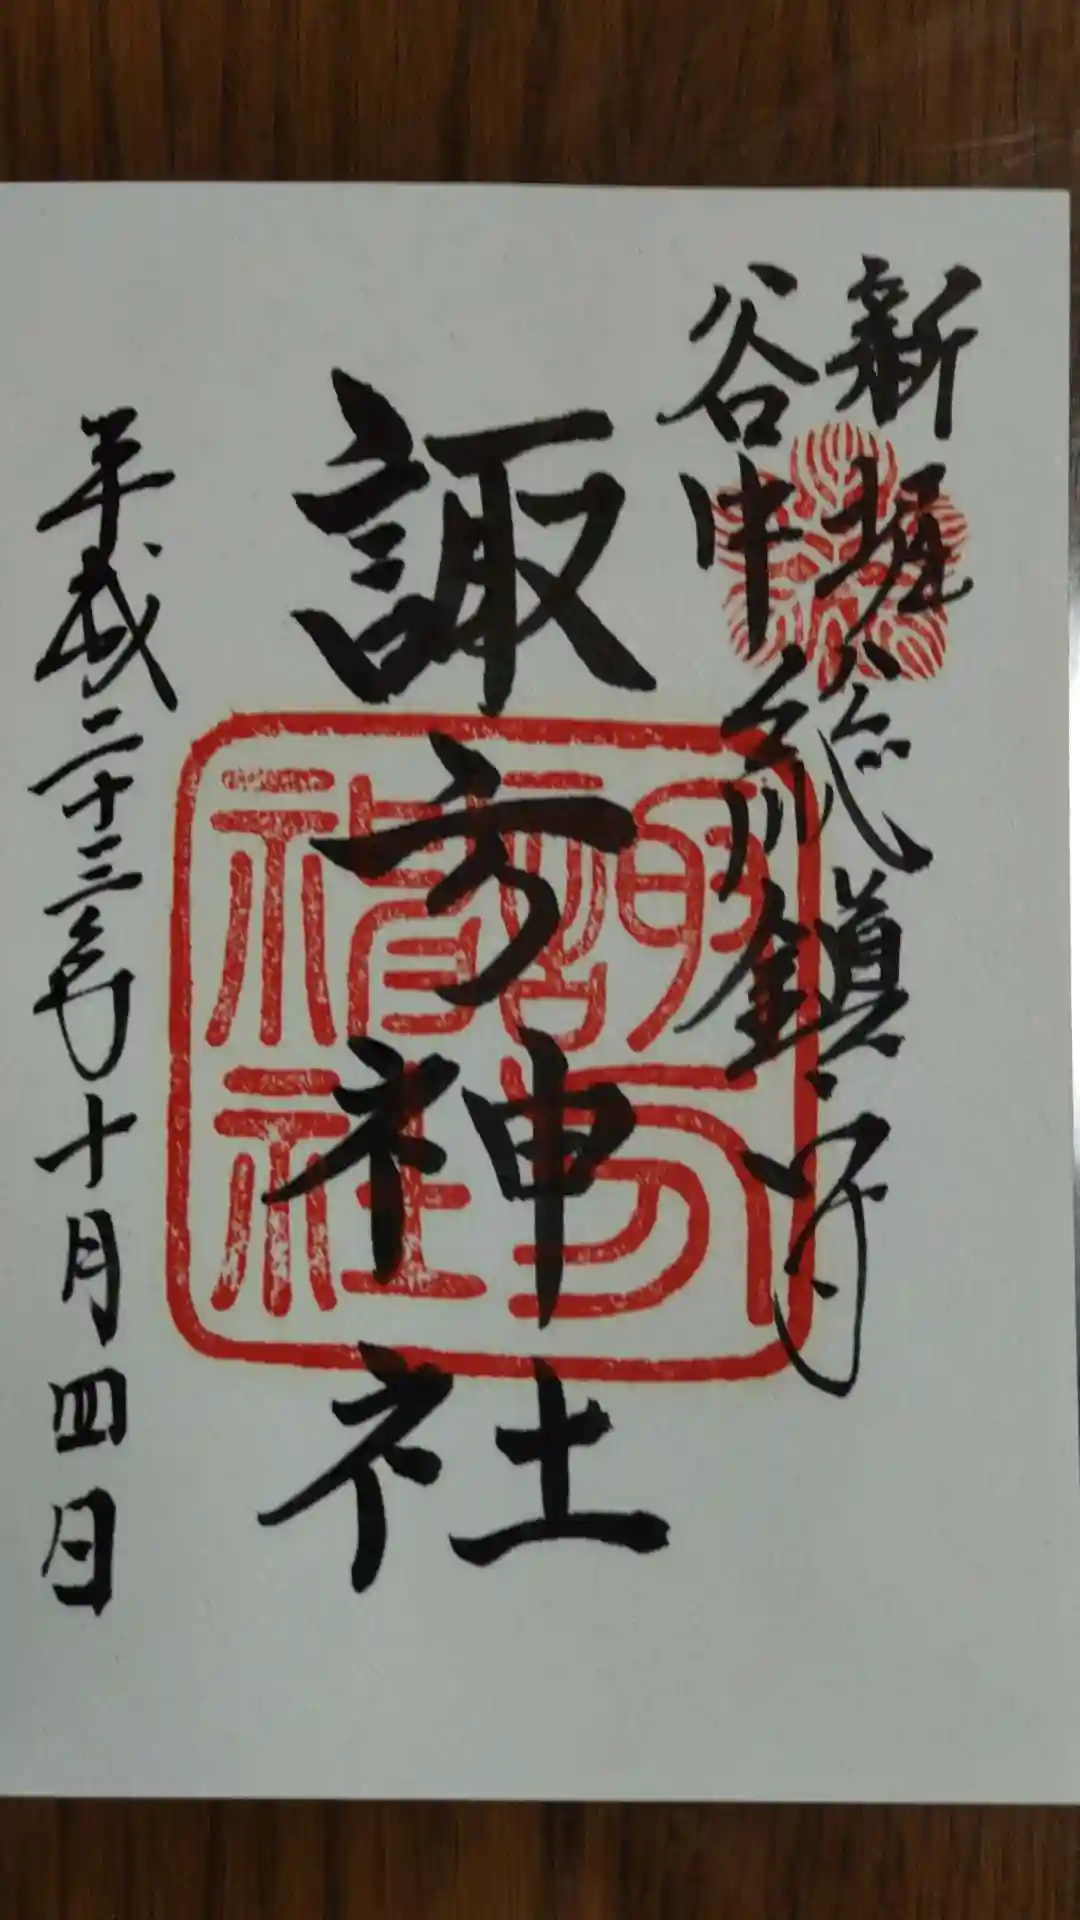 新堀
谷中
総鎮守
諏方神社
諏方
神社
平成二十三年十月四日